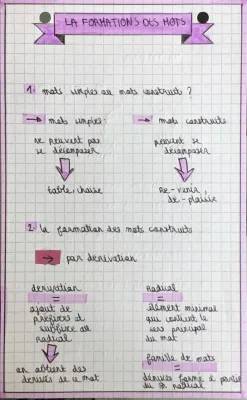 LA FORMATIONS DES MOTS
1. mots simples ou mots construits ?
→ mots simples:
ne peuvent pas
se décomposer
table, chaise
→ mots construits
peuvent se
décomposer
Re-venir,
de-plaisir
2. la formation des mots construits
→ par dérivation
derivation
=
ajout de
préfixes et
suffixe au
radical
on obtient des
dérivés de ce mot
radical
=
élément minimal
qui contient le
sens principal
du mot
famille de mots
=
dérivés formé à partir
du m radical